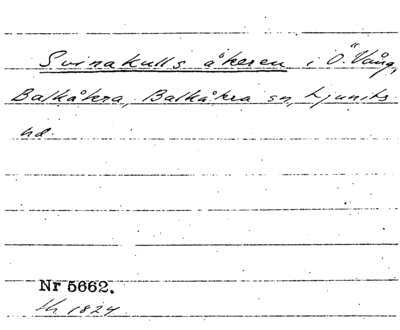 Svinakulls åkeren i Ö. Vång,
Balkåkra, Balkåkra sn, Ljunits
hd
Nr 5662.
1824